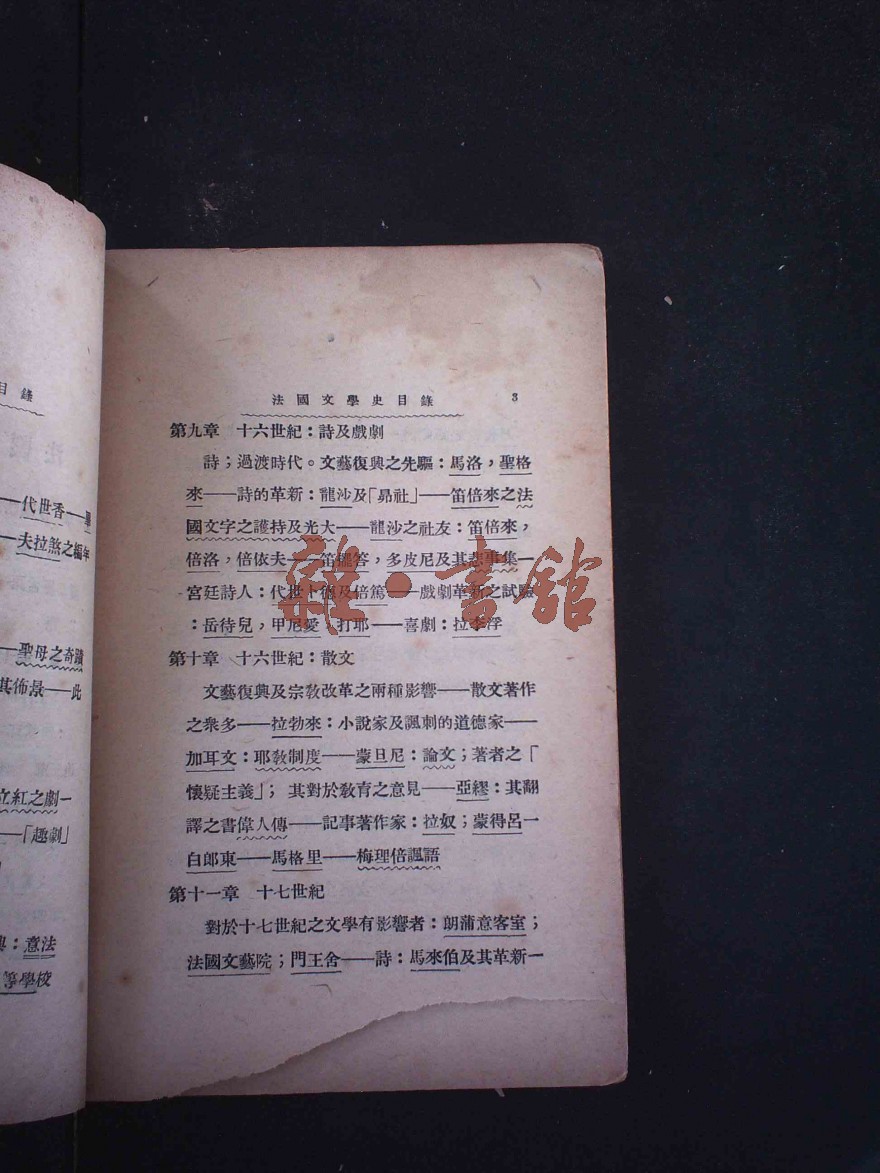 目錄
代世香——
——夫拉煞之編年
——聖母之奇蹟
其佈景——此
立紅之劇一
——「趣劇」
：意法
等學校
法國文學史目錄 3
第九章 十六世紀：詩及戲劇
詩；過渡時代。文藝復興之先驅：馬洛，聖格
來——詩的革新：龍沙及「昴社」——笛倍來之法
國文字之護持及光大——龍沙之社友：笛倍來，
倍洛，倍依夫——笛答，多皮尼及其悲事集一
宮廷詩人：代世卜德及倍篤——戲劇革新之試驗
：岳待兒，甲尼愛，打耶——喜劇：拉李浮
第十章 十六世紀：散文
文藝復興及宗敎改革之兩種影響——散文著作
之衆多——拉勃來：小說家及諷刺的道德家——
加耳文：耶敎制度——蒙旦尼：論文；著者之「
懷疑主義」；其對於敎育之意見——亞繆：其翻
譯之書偉人傳——記事著作家：拉奴；蒙得呂一
白郎東——馬格里——梅理倍諷語
第十一章 十七世紀
對於十七世紀之文學有影響者：朗蒲意客室；
法國文藝院；門王舍——詩：馬來伯及其革新一
雜·書館